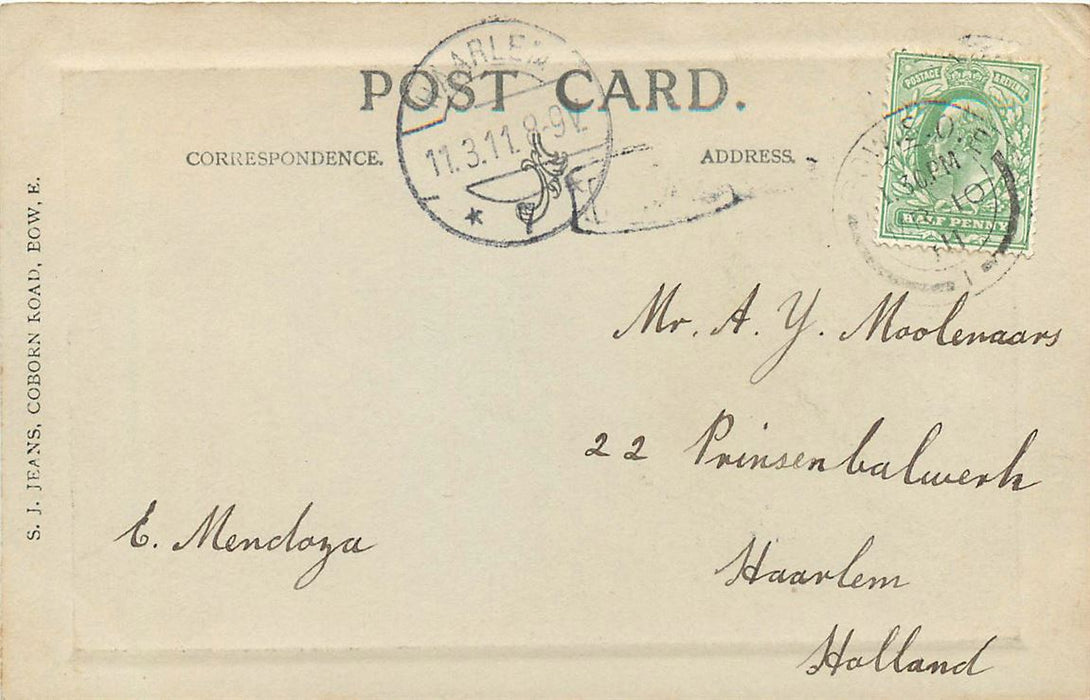 POST CARD.
CORRESPONDENCE.
ADDRESS.
HAARLEM
11.3.11. 8-9V.
POSTAGE & REVENUE
HALF PENNY
PM
10
11
S. J. JEANS, COBORN ROAD, BOW, E.
Mr. A. Y. Moolenaars
22 Prinsenbalwerk
Haarlem
Holland
E. Mendoza